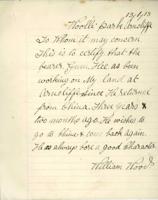 13/1/13
Woolli Park Arncliffe
To Whom it may concern
This is to certify that the
bearer has been
working on My land at
Arncliffe Since He returned
from China. Three years &
two months ago. He wishes to
go to China & come back again.
He as always bore a good Character
William Wood